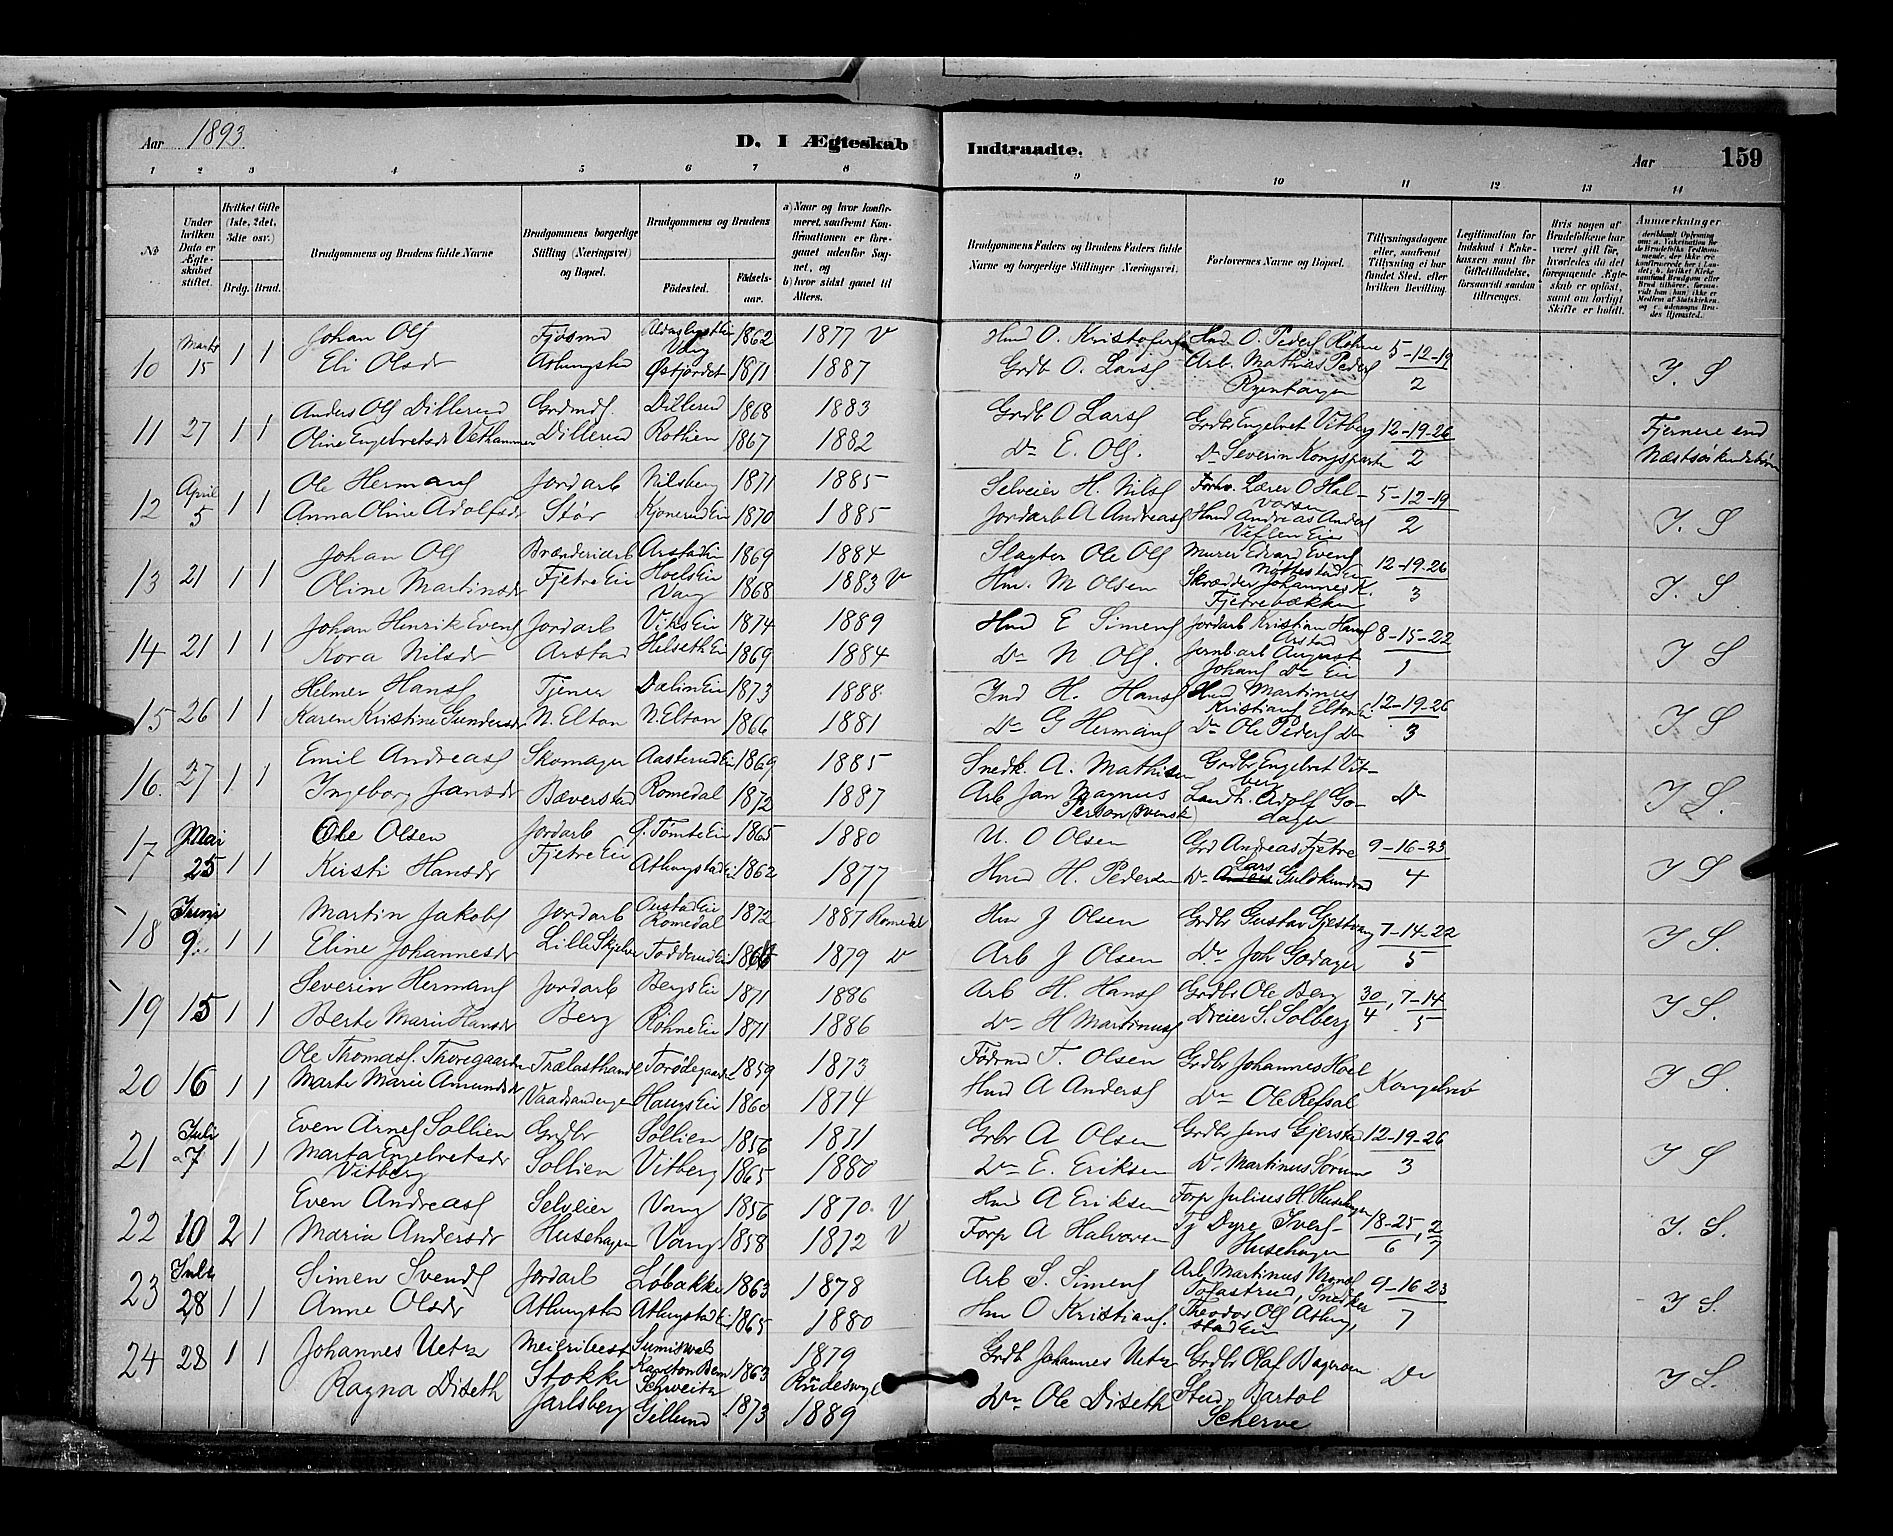 Aar 1893. D. I Ægteskab Indtraadte. Aar 159
1 2 3 4 5 6 7 8 9 10 11 12 13 14
No
Under hvilken Dato er Ægteskabet stiftet.
Hvilket Gifte (1ste, 2det, 3die osv.)
Brdg. Brud.
Brudgommens og Brudens fulde Navne
Brudgommens borgerlige Stilling (Næringsvei) og Bopæl.
Brudgommens og Brudens
Födested. Födselsaar.
a) Naar og hvor konfirmeret, saafremt Konfirmationen er foregaaet udenfor Sognet, og
b) hvor sidst gaaet til Alters.
Brudgommens Faders og Brudens Faders fulde Navne og borgerlige Stillinger (Næringsvei).
Forlovernes Navne og Bopæl.
Tillysningsdagene eller, saafremt Tillysning ei har fundet Sted, efter hvilken Bevilling.
Legitimation for Indskud i Enkekassen samt for Giftetilladelse, forsaavidt saadan tiltrænges.
Hvis nogen af Brudefolkene har været gift för, hvorledes da det foregaaende Ægteskab er oplöst, samt om lovligt Skifte er holdt.
Anmærkninger
10 Marts 15 1 1 Johan Ols Fjösmd Vang 1862 1877 V Hmd O. Kristofers Hmd. O. Peders Röhne 5-12-19
Eli Olsdr Athungstad Östjordet 1871 1887 Grdb O. Lars Arb. Mathias Peders 2 I. S
11 27 1 1 Anders Ols Dillerud Grdmds. Dillerud 1868 1883 Grdb O Lars Grdbr Engebret Vitberg 12-19-26 Fjernere end
Oline Engebretsdr Vethammer Dillerud Rothien 1867 1882 Do E. Ols. Do Severin Kongsparten 2 Næstsöskendebörn
12 April 5 1 1 Ole Hermans Jordarb Nilsberg 1871 1885 Selveier H. Nils Forhv. Lærer O Halvorsen 5-12-19
Anna Oline Adolfsdr Stör Kjonerud Eie 1870 1885 Jordarb A Andreas Hmd Andreas Anders 2 I. S
13 21 1 1 Johan Ols Brænderiarb Arstad Eie 1869 1884 Slagter Ole Ols Murer Edvard Evens 12-19-26
Oline Martinsdr Fjetre Eie Hoels Eie Vang 1868 1883 V Hm. M Olsen Skrædder Johannes K. Fjetrebækken 3 I. S
14 21 1 1 Johan Henrik Evens Jordarb Viks Eie 1874 1889 Hmd E Simens Jordarb Kristian Hans Arstad 8-15-22
Kora Nilsdr Arstad Helseth Eie 1869 1884 Do N Ols. Jernb.arb August Johans Do Eie 1 I S
15 26 1 1 Helmer Hans Tjener Dælin Eie 1873 1888 Ind H. Hans Hmd Martinus Kristians Elton Ei 12-19-26
Karen Kristine Gundersdr N. Elton N. Elton 1866 1881 Do G Hermans Do Ole Peders Do 3 I S
16. 27 1 1 Emil Andreas Skomager Aasterud Ei 1869 1885 Snedk. A. Mathisen Grdbr Engebret Vitberg
Ingeborg Jansdr Bæverstad Romedal 1872 1887 Arb Jan Magnus Person (Svensk) Landh. Adolf Godager Do I S.
17 Mai 25 1 1 Ole Olsen Jordarb Ö. Tömte Eie 1865 1880 U. O Olsen Grd Andreas Fjetre 9-16-23
Kirsti Hansdr Fjetre Eie Athungstad Ei 1862 1877 Hmd H. Pedersen Do Lars Guldkunrud 4 I S
18 Juni 9. 1 1 Martin Jakobs Jordarb Romedal 1872 1887 Romedal Hm J Olsen Grdbr Gustav Gjestvang 7-14-22
Eline Johannesdr Lille Skjelve Fodderud Eie 1866 1879 V Arb J Olsen Do Joh Godager 5 I S.
19 15 1 1 Severin Hermans Jordarb Bergs Eie 1871 1886 Arb H. Hans Grdbr Ole Berg 30/4, 7-14
Berte Marie Hansdr Berg Röhne Eie 1871 1886 Do H Martinus Dreier S. Solberg 5 I S.
20 16 1 1 Ole Thomass. Thoregaarden Trælasthandl Torödegaarden 1859 1873 Föderd T. Olsen Grdbr Johannes Hoel
Marte Marie Amundsdr Haugs Eie 1860 1874 Hmd A Anders Do Ole Refsal Kongebrev I S.
21 Juli 7 1 1 Even Arnes Sollien Grdbr Sollien 1856 1871 Grbr A Olsen Grdbr Jens Gjerstad 12-19-26
Marta Engebretsdr Vitberg Sollien Vitberg 1865 1880 Do E. Eriksen Do Martinus Sörum 3 I S
22 10 2 1 Even Andreas Selveier Vang 1856 1870 V Hmd A Eriksen Forp Julius H. Husehagen 18-25, 2
Maria Andersdr Husehagen Vang 1858 1872 V Forp A Halvorsen Tj Dyre Ivers Husehagen 6 7 I. S.
23 Juli 28 1 1 Simen Svends Jordarb Löbakke 1863 1878 Arb S. Simens Arb Martinus 9-16-23
Anne Olsdr Athungstad Athungstad Ei 1865 1880 Hm O Kristians. Theodor Ols Athungstad Eie 7 I S.
24 28 1 1 Johannes Uetz Meieribest Sumiswald Kanton Bern Schweitz 1863 1879 Rüderswyl Grdb Johannes Uetz Grdbr Olaf
Ragna Diseth Stokke Jarlsberg Gillund 1873 1889 Do Ole Diseth Stud. Bartol Scherve Do I S.